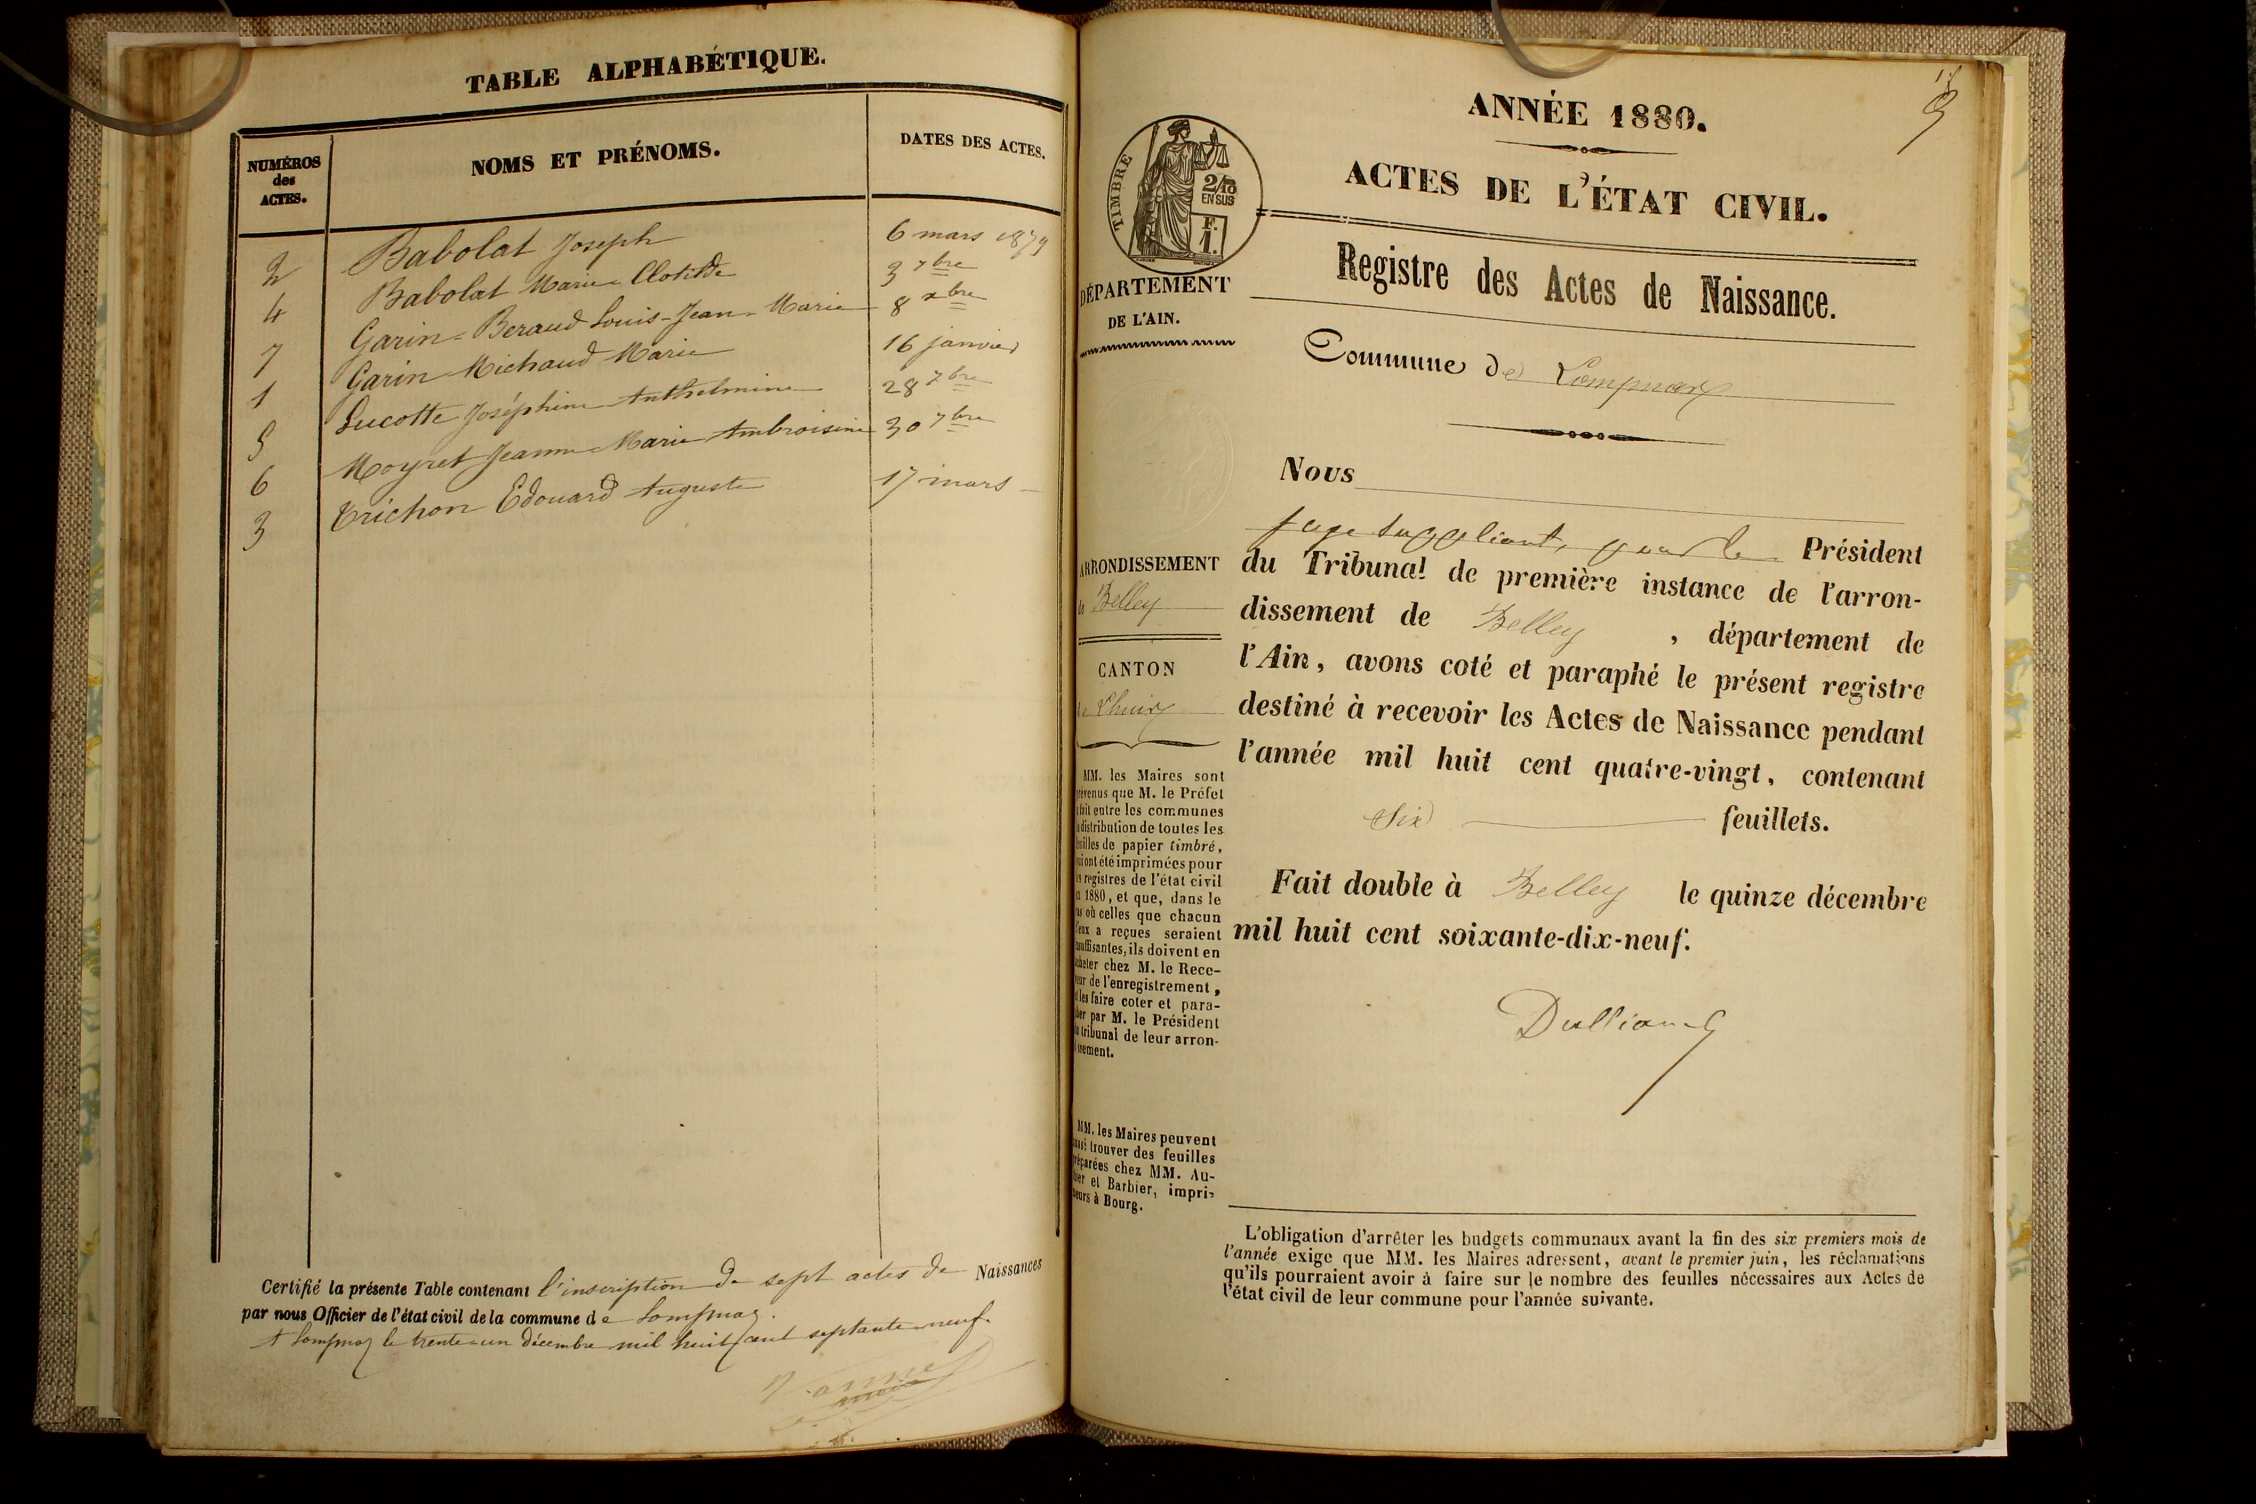 TABLE ALPHABÉTIQUE.
NUMÉROS
des
ACTES.
NOMS ET PRÉNOMS.
DATES DES ACTES.
2 Babolat Joseph 6 mars 1879
4 Babolat Marie Clotilde 3 7bre
7 Garin-Beraud Louis-Jean-Marie 8 xbre
1 Garin Michaud Marie 16 janvier
5 Lucotte Joséphine Anthelmine 28 7bre
6 Moyret Jeanne Marie Ambroisine 30 7bre
3 Trichon Edouard Auguste 17 mars
Certifié la présente Table contenant l'inscription de sept actes de Naissances
par nous Officier de l'état civil de la commune de Lompnaz.
A Lompnaz le trente-un décembre mil huit cent septante-neuf.
ANNÉE 1880.
ACTES DE L'ÉTAT CIVIL.
TIMBRE
2/10
EN SUS
F.
1.
DÉPARTEMENT
DE L'AIN.
Registre des Actes de Naissance.
Commune de Lompnaz
ARRONDISSEMENT
de Belley
CANTON
de Lhuis
MM. les Maires sont
prévenus que M. le Préfet
a fait entre les communes
la distribution de toutes les
feuilles de papier timbré,
qui ont été imprimées pour
les registres de l'état civil
en 1880, et que, dans le
cas où celles que chacun
d'eux a reçues seraient
insuffisantes, ils doivent en
acheter chez M. le Rece-
veur de l'enregistrement,
et les faire coter et para-
pher par M. le Président
du tribunal de leur arron-
dissement.
MM. les Maires peuvent
aussi trouver des feuilles
préparées chez MM. Au-
thier et Barbier, impri-
meurs à Bourg.
Nous
juge suppléant, pour le Président
du Tribunal de première instance de l'arron-
dissement de Belley, département de
l'Ain, avons coté et paraphé le présent registre
destiné à recevoir les Actes de Naissance pendant
l'année mil huit cent quatre-vingt, contenant
six feuillets.
Fait double à Belley le quinze décembre
mil huit cent soixante-dix-neuf.
L'obligation d'arrêter les budgets communaux avant la fin des six premiers mois de
l'année exige que MM. les Maires adressent, avant le premier juin, les réclamations
qu'ils pourraient avoir à faire sur le nombre des feuilles nécessaires aux Actes de
l'état civil de leur commune pour l'année suivante.